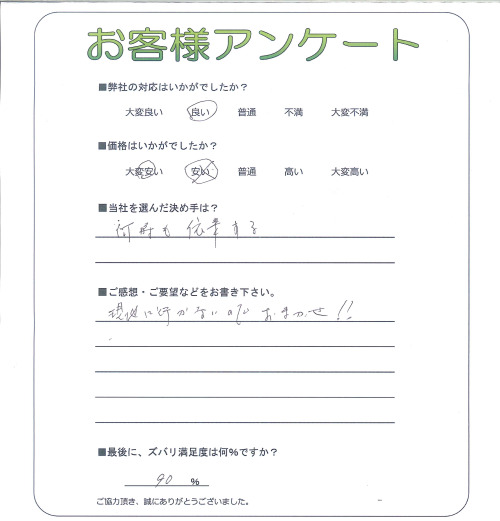 お客様アンケート
■弊社の対応はいかがでしたか？
大変良い 良い 普通 不満 大変不満
■価格はいかがでしたか？
大変安い 安い 普通 高い 大変高い
■当社を選んだ決め手は？
何時も 依頼する
■ご感想・ご要望などをお書き下さい。
現地に行かないので おまかせ!!
■最後に、ズバリ満足度は何%ですか？
90 %
ご協力頂き、誠にありがとうございました。